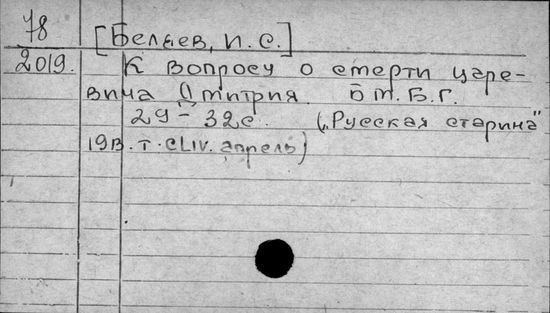 78
[Беляев, И. С.]
2019.
К вопросу о смерти царе-
вича Дмитрия. Б м. Б. Г.
29 - 32 с. („Русская старина"
1913. т. CLIV. апрель)